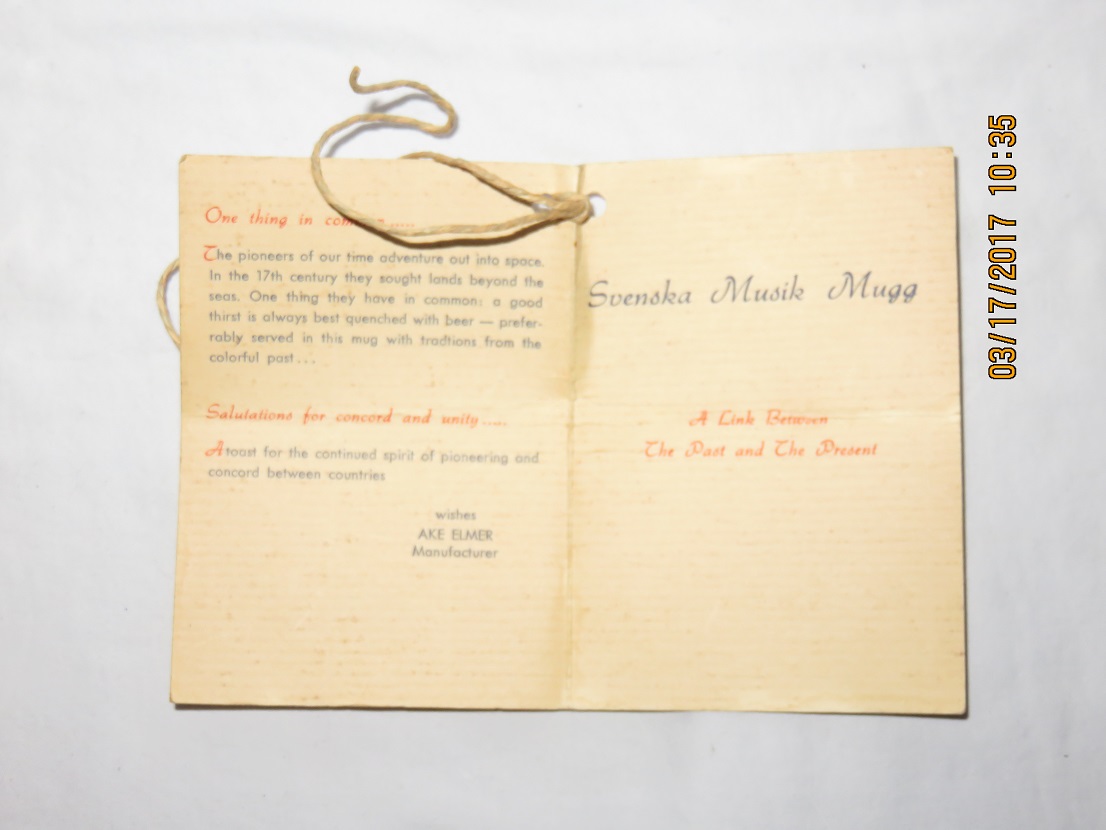 One thing in common.....
The pioneers of our time adventure out into space.
In the 17th century they sought lands beyond the
seas. One thing they have in common: a good
thirst is always best quenched with beer — prefer-
rably served in this mug with tradtions from the
colorful past...
Salutations for concord and unity.....
A toast for the continued spirit of pioneering and
concord between countries
wishes
AKE ELMER
Manufacturer
Svenska Musik Mugg
A Link Between
The Past and The Present
03/17/2017 10:35